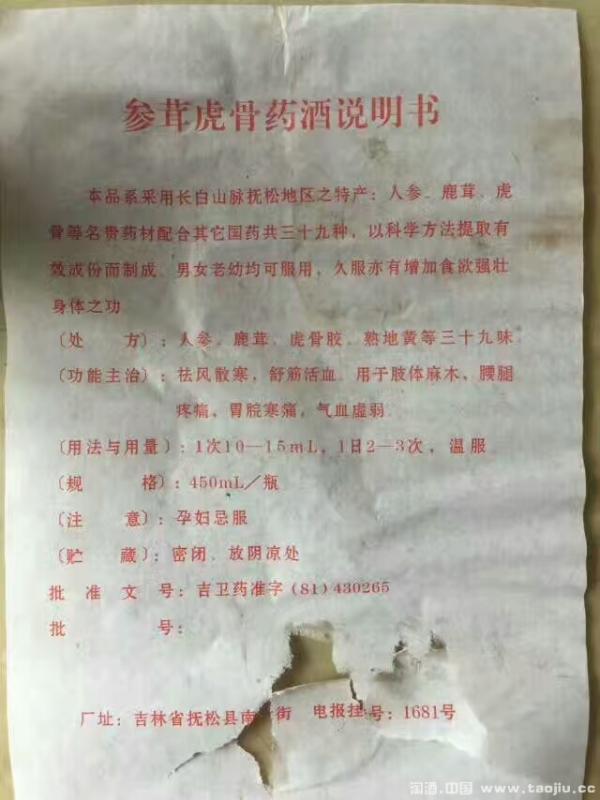 参茸虎骨药酒说明书
本品系采用长白山脉抚松地区之特产:人参、鹿茸、虎
骨等名贵药材配合其它国药共三十九种,以科学方法提取有
效成份而制成。男女老幼均可服用,久服亦有增加食欲强壮
身体之功
〔处 方〕:人参、鹿茸、虎骨胶、熟地黄等三十九味
〔功能主治〕:祛风散寒,舒筋活血。用于肢体麻木、腰腿
疼痛、胃脘寒痛,气血虚弱
〔用法与用量〕:1次10—15mL,1日2—3次,温服
〔规 格〕:450mL/瓶
〔注 意〕:孕妇忌服
〔贮 藏〕:密闭、放阴凉处
批准文号:吉卫药准字(81)430265
批 号:
厂址:吉林省抚松县南 街 电报挂号:1681号
淘酒.中国 www.taojiu.cc